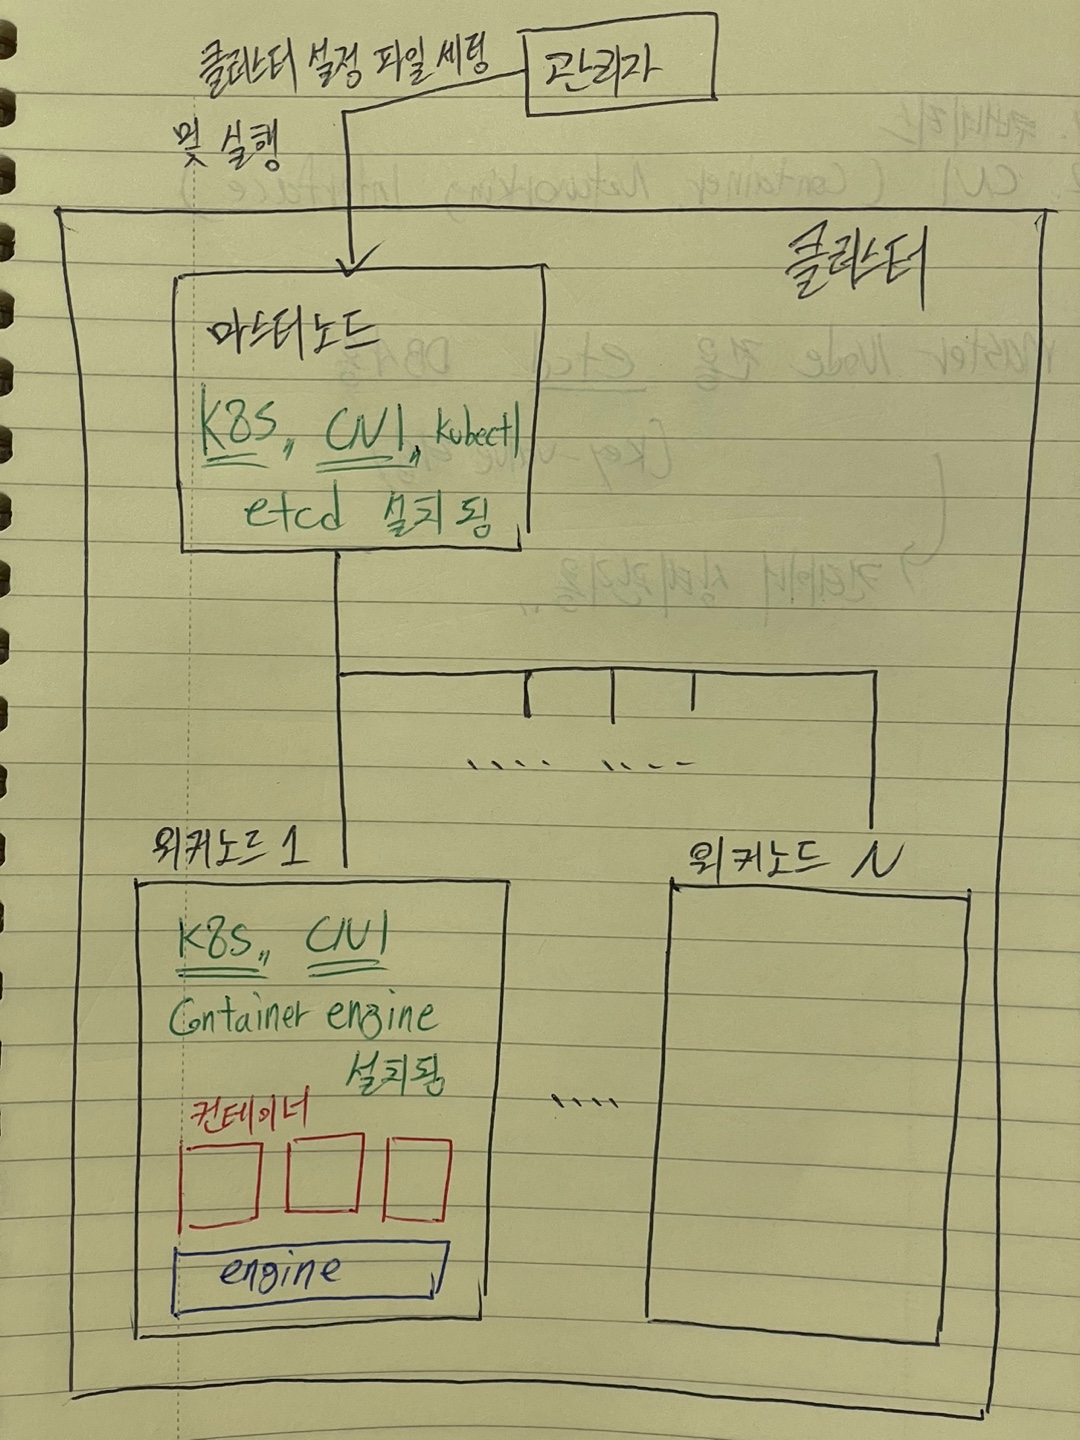 클러스터 설정 파일 세팅
관리자
및 실행
클러스터
마스터노드
K8S, CNI, Kubectl
etcd 설치됨
워커노드 1
워커노드 N
K8S, CNI
Container engine
설치됨
컨테이너
engine